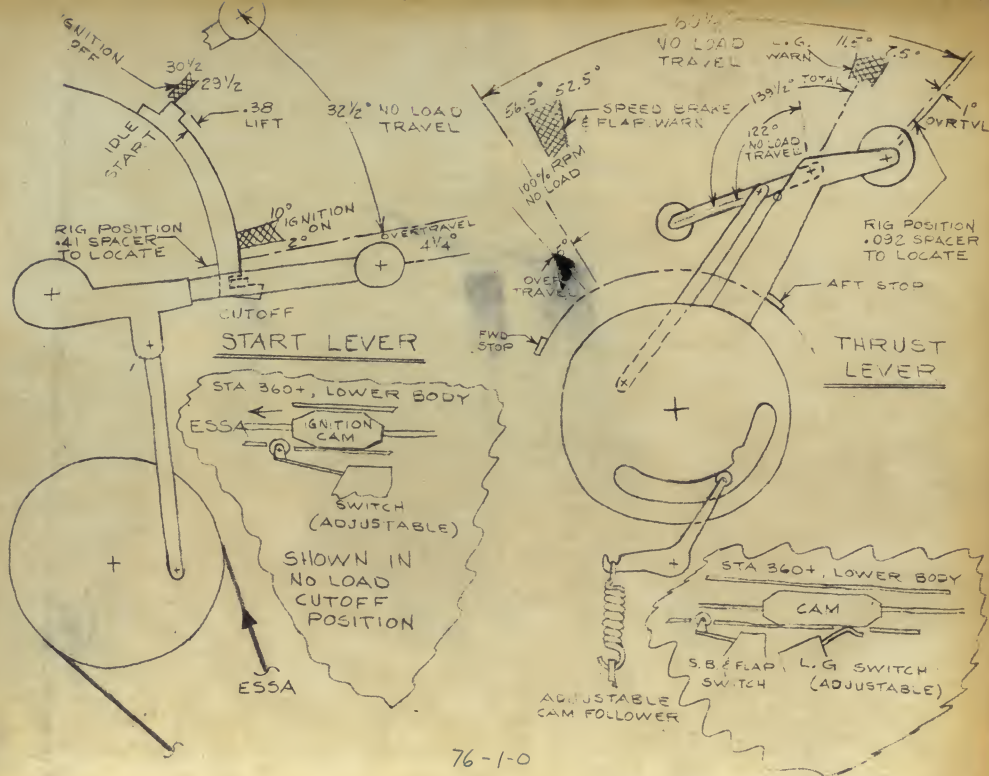 IGNITION
OFF
30 1/2
29 1/2
.38
LIFT
IDLE
START
32 1/2° NO LOAD
TRAVEL
10°
IGNITION
ON
2°
OVERTRAVEL
4 1/4°
RIG POSITION
.41 SPACER
TO LOCATE
CUTOFF
START LEVER
STA 360+, LOWER BODY
ESSA
IGNITION
CAM
SWITCH
(ADJUSTABLE)
SHOWN IN
NO LOAD
CUTOFF
POSITION
ESSA
NO LOAD
TRAVEL
L.G.
WARN
11.5°
7.5°
139 1/2° TOTAL
56.5°
52.5°
SPEED BRAKE
& FLAP WARN
100% RPM
NO LOAD
122°
NO LOAD
TRAVEL
1°
OVRTVL
RIG POSITION
.092 SPACER
TO LOCATE
OVER
TRAVEL
FWD
STOP
AFT STOP
THRUST
LEVER
STA 360+, LOWER BODY
CAM
S.B. & FLAP
SWITCH
L.G SWITCH
(ADJUSTABLE)
ADJUSTABLE
CAM FOLLOWER
76-1-0